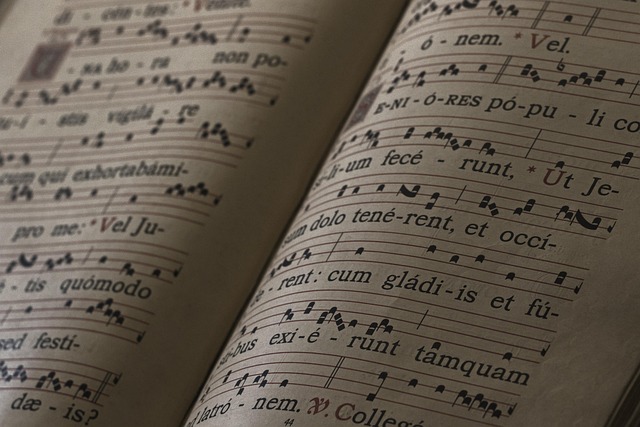 di - cén-tes: * Venite.
U - NA ho - ra non po-
tu-i - stis vigilá - re
cum qui exhortabámi-
pro me: * Vel Ju-
é - tis quómodo
sed festí-
dæ - is?
ó - nem. * Vel.
E-NI - Ó-RES pó-pu - li co
sí-li-um fecé - runt, * Ut Je-
sum dolo tené-rent, et occí-
de - rent: cum gládi-is et fú-
sti-bus exi-é - runt tamquam
ad latró - nem. ℣. Collegé
44